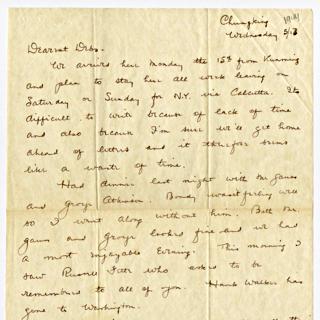 Chungking
Wednesday 5/
Dearest Debs.
We arrived here Monday the 15th from Kunming
and plan to stay here all week leaving on
Saturday or Sunday for N.Y. via Calcutta. Its
difficult to write because of lack of time
and also because I'm sure we'll get home
ahead of letters and it therefore seems
like a waste of time.
Had dinner last night with Mr. Gauss
and George Atcheson. wasn't feeling well
so I went along without him. Both Mr.
Gauss and George looked fine and we had
a most enjoyable Evening. This morning I
saw who asks to be
remembered to all of you. Hank Walker has
gone to Washington.